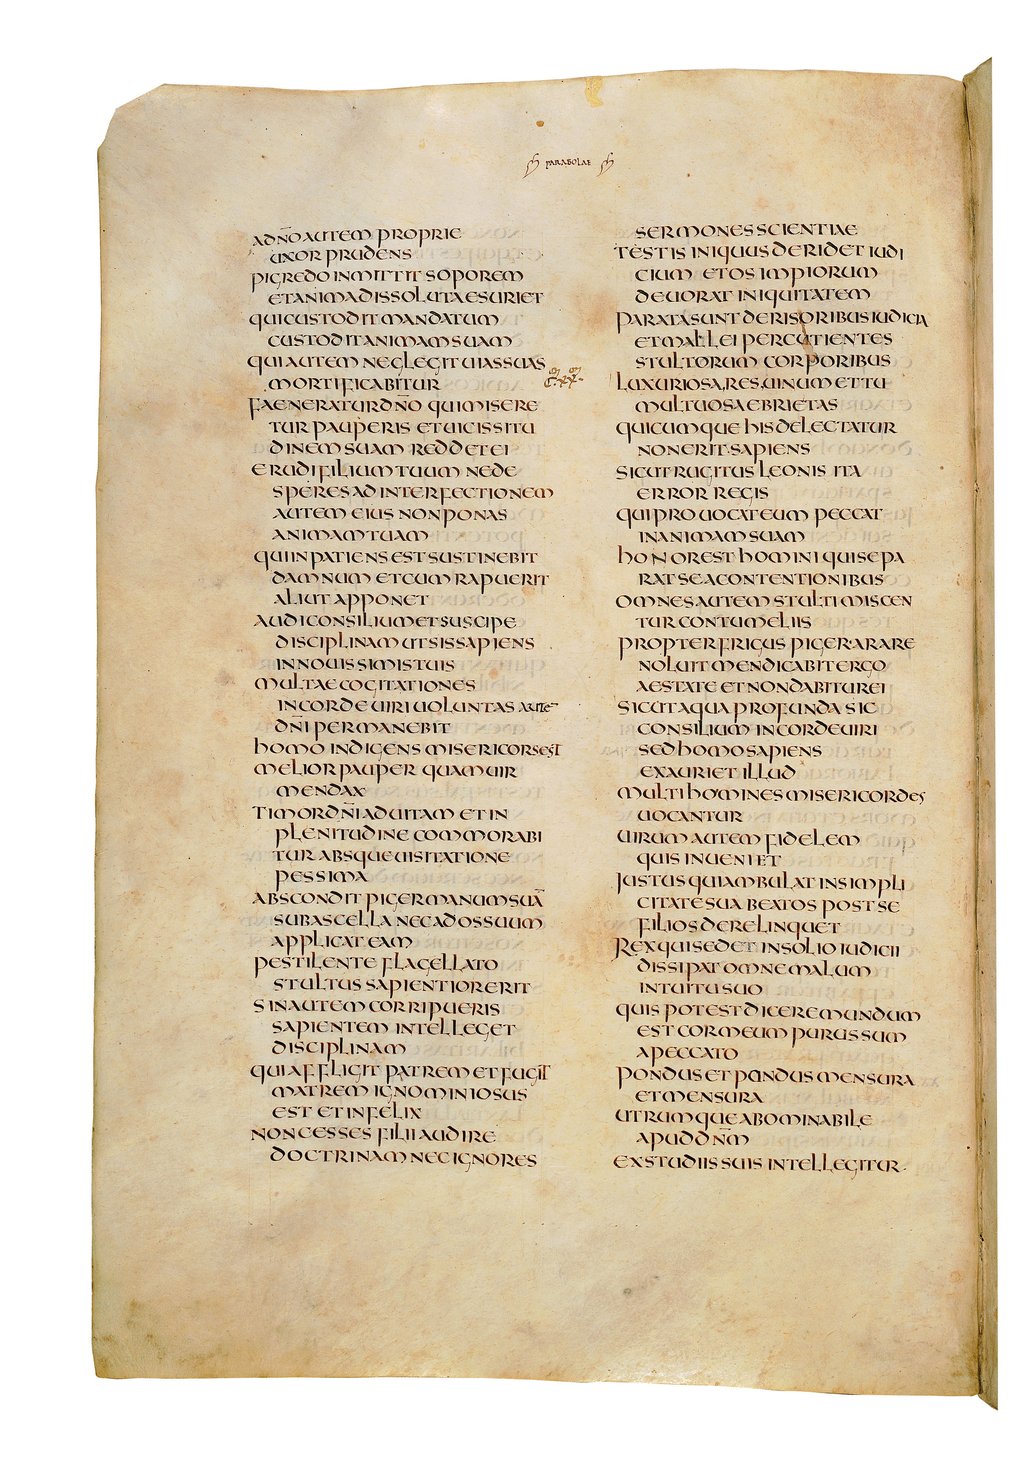 PARABOLAE
A DN̄O AUTEM PROPRIE
UXOR PRUDENS
PIGREDO INMITTIT SOPOREM
ET ANIMA DISSOLUTA ESURIET
QUI CUSTODIT MANDATUM
CUSTODIT ANIMAM SUAM
QUI AUTEM NEGLEGIT UIAS SUAS
MORTIFICABITUR
FAENERATUR DN̄O QUI MISERE
TUR PAUPERIS ET UICISSITU
DINEM SUAM REDDET EI
ERUDI FILIUM TUUM NE DE
SPERES AD INTERFECTIONEM
AUTEM EIUS NON PONAS
ANIMAM TUAM
QUI INPATIENS EST SUSTINEBIT
DAMNUM ET CUM RAPUERIT
ALIUT APPONET
AUDI CONSILIUM ET SUSCIPE
DISCIPLINAM UT SIS SAPIENS
IN NOUISSIMIS TUIS
MULTAE COGITATIONES
IN CORDE UIRI UOLUNTAS AUTE̅
DN̄I PERMANEBIT
HOMO INDIGENS MISERICORS EST
MELIOR PAUPER QUAM UIR
MENDAX
TIMOR DN̄I AD UITAM ET IN
PLENITUDINE COMMORABI
TUR ABSQUE UISITATIONE
PESSIMA
ABSCONDIT PIGER MANUM SUĀ
SUB ASCELLA NEC AD OS SUUM
APPLICAT EAM
PESTILENTE FLAGELLATO
STULTUS SAPIENTIOR ERIT
SIN AUTEM CORRIPUERIS
SAPIENTEM INTELLEGET
DISCIPLINAM
QUI AFFLIGIT PATREM ET FUGIT
MATREM IGNOMINIOSUS
EST ET INFELIX
NON CESSES FILI AUDIRE
DOCTRINAM NEC IGNORES
SERMONES SCIENTIAE
TESTIS INIQUUS DERIDET IUDI
CIUM ET OS IMPIORUM
DEUORAT INIQUITATEM
PARATA SUNT DERISORIBUS IUDICIA
ET MALLEI PERCUTIENTES
STULTORUM CORPORIBUS
LUXURIOSA RES UINUM ET TU
MULTUOSA EBRIETAS
QUICUMQUE HIS DELECTATUR
NON ERIT SAPIENS
SICUT RUGITUS LEONIS ITA
ERROR REGIS
QUI PROUOCAT EUM PECCAT
IN ANIMAM SUAM
HONOR EST HOMINI QUI SEPA
RAT SE A CONTENTIONIBUS
OMNES AUTEM STULTI MISCEN
TUR CONTUMELIIS
PROPTER FRIGUS PIGER ARARE
NOLUIT MENDICABIT ERGO
AESTATE ET NON DABITUR EI
SICUT AQUA PROFUNDA SIC
CONSILIUM IN CORDE UIRI
SED HOMO SAPIENS
EXAURIET ILLUD
MULTI HOMINES MISERICORDES
UOCANTUR
UIRUM AUTEM FIDELEM
QUIS INUENIET
IUSTUS QUI AMBULAT IN SIMPLI
CITATE SUA BEATOS POST SE
FILIOS DERELINQUET
REX QUI SEDET IN SOLIO IUDICII
DISSIPAT OMNE MALUM
INTUITU SUO
QUIS POTEST DICERE MUNDUM
EST COR MEUM PURUS SUM
A PECCATO
PONDUS ET PONDUS MENSURA
ET MENSURA
UTRUMQUE ABOMINABILE
APUD DN̄M
EX STUDIIS SUIS INTELLEGITUR